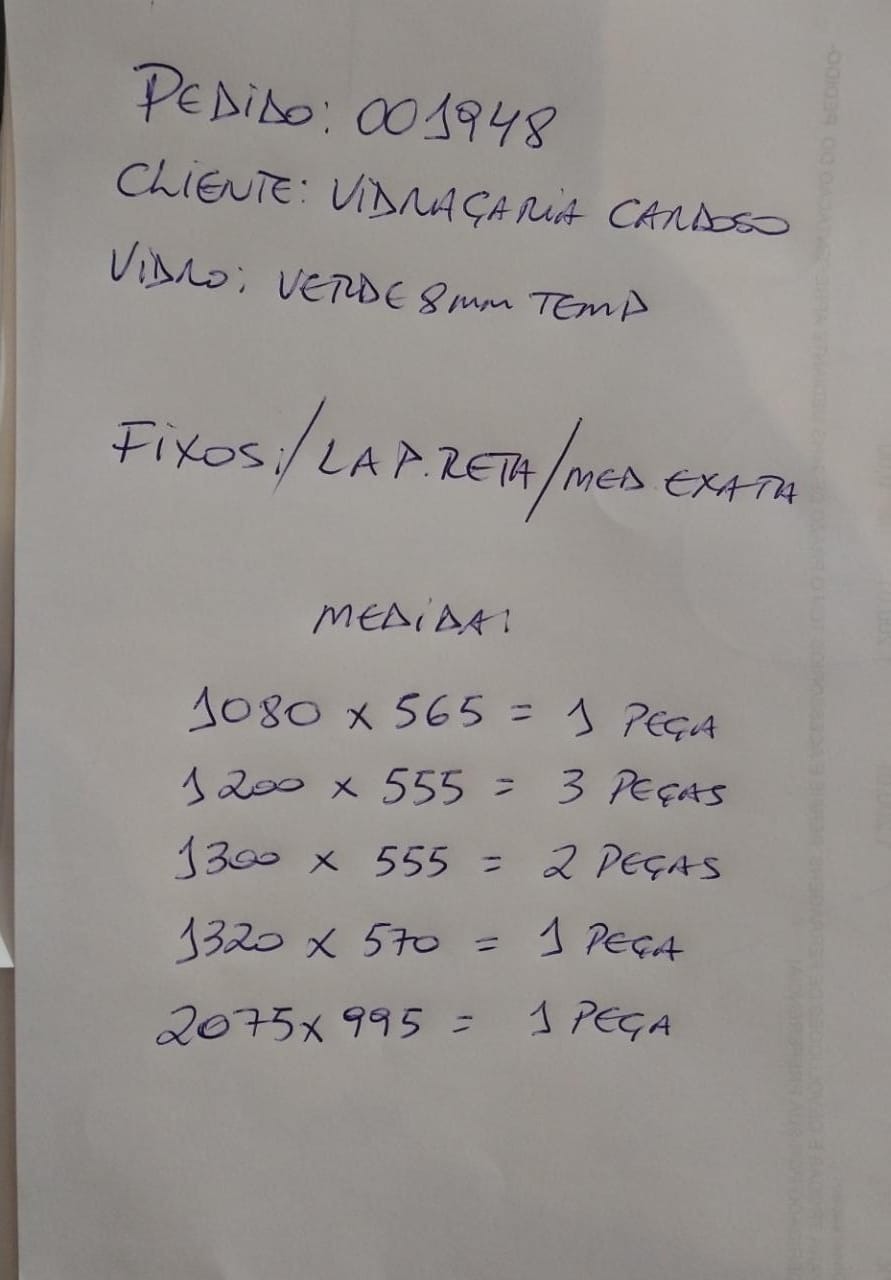 PEDIDO: 001948
CLIENTE: VIDRAÇARIA CARDOSO
VIDRO: VERDE 8mm TEMP
FIXOS:/LAP. RETA/MED EXATA
MEDIDA:
1080 x 565 = 1 PEÇA
1200 x 555 = 3 PEÇAS
1300 x 555 = 2 PEÇAS
1320 x 570 = 1 PEÇA
2075 x 995 = 1 PEÇA